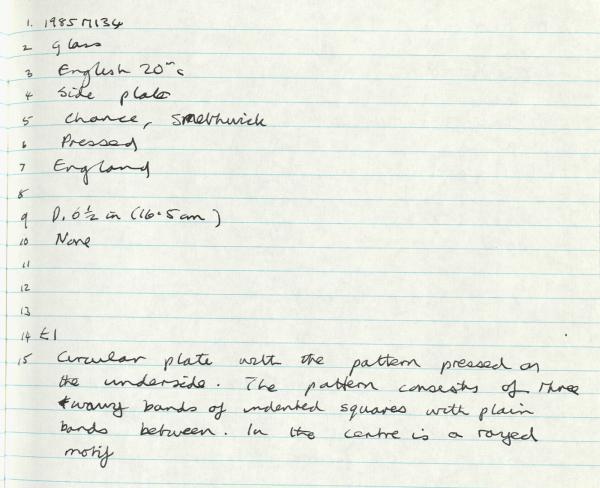 1. 1985M134
2 Glass
3 English 20th c
4 Side plate
5 Chance, Smethwick
6 Pressed
7 England
8
9 D. 6½ in (16.5 cm)
10 None
11
12
13
14 £1
15 Circular plate with the pattern pressed on
the underside. The pattern consists of three
wavy bands of indented squares with plain
bands between. In the centre is a rayed
motif